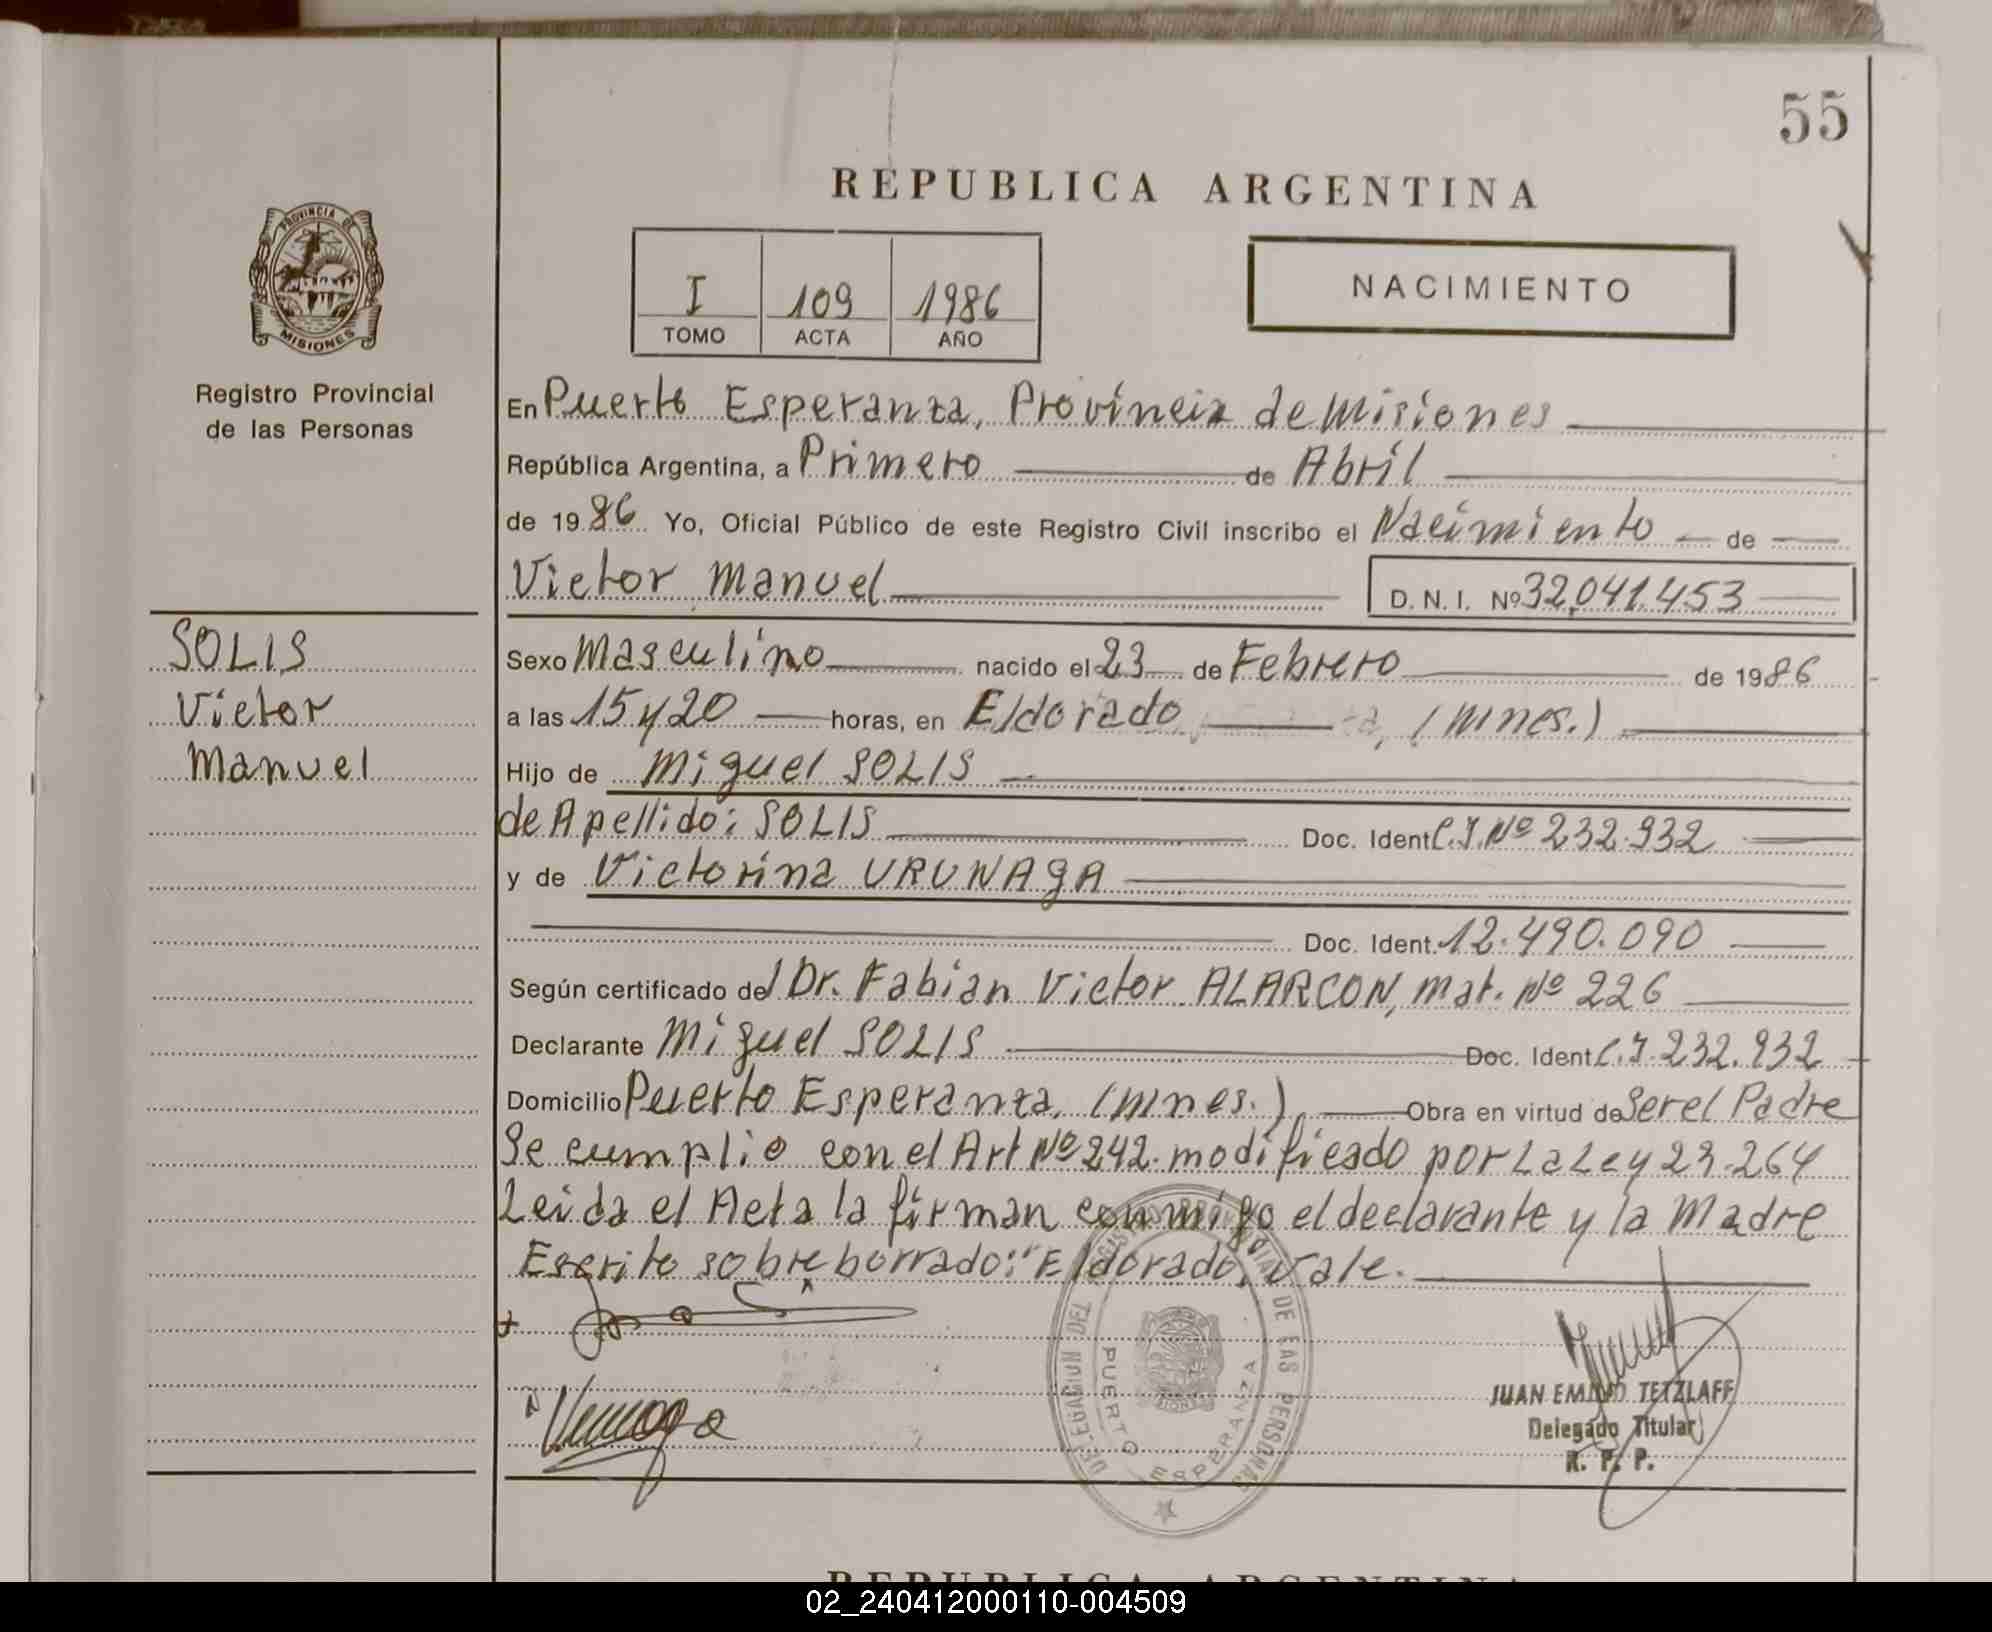 55
REPUBLICA ARGENTINA
PROVINCIA DE
MISIONES
Registro Provincial
de las Personas
I 109 1986
TOMO ACTA AÑO
NACIMIENTO
En Puerto Esperanza, Provincia de Misiones
República Argentina, a Primero de Abril
de 1986 Yo, Oficial Público de este Registro Civil inscribo el Nacimiento de
Victor Manuel
D. N. I. Nº 32.041.453
SOLIS
Victor
Manuel
Sexo Masculino nacido el 23 de Febrero de 1986
a las 15 y 20 horas, en Eldorado, (Mnes.)
Hijo de Miguel SOLIS
de Apellido: SOLIS Doc. Ident. C.I. Nº 232.932
y de Victorina URUNAGA
Doc. Ident. 12.490.090
Según certificado del Dr. Fabian Victor ALARCON, Mat. Nº 226
Declarante Miguel SOLIS Doc. Ident. C.I. 232.932
Domicilio Puerto Esperanza, (Mnes.) Obra en virtud de Ser el Padre
Se cumplio con el Art Nº 242. modificado por La Ley 23.264
Leida el Acta la firman conmigo el declarante y la Madre
Escrito sobre borrado: "Eldorado, Vale.
DELEGACION DEL REGISTRO PROVINCIAL DE LAS PERSONAS
PUERTO ESPERANZA
JUAN EMILIO TETZLAFF
Delegado Titular
R. P. P.
REPUBLICA ARGENTINA
02_240412000110-004509